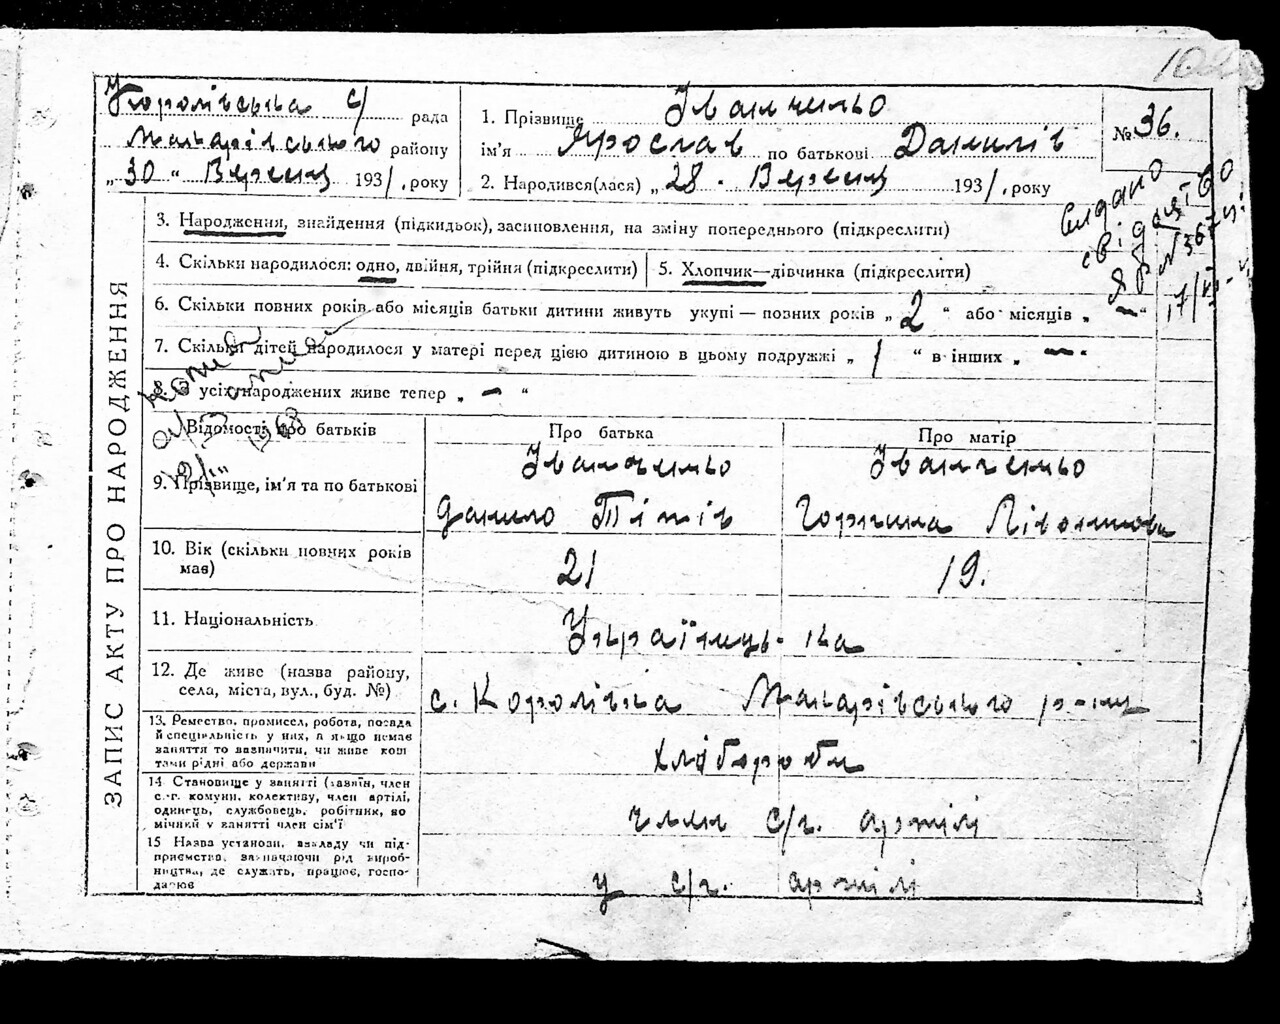 Королівська с/ рада
Макарівського району
„ 30 “ Вересня 1931 . року
1. Прізвище Іванченко
ім'я Ярослав по батькові Данилів
2. Народився(лася) „ 28 . Вересня 1931 . року
№ 36.
видано
свідоцтво
ЯБ № 367
17/
3. Народження, знайдення (підкидьок), засиновлення, на зміну попереднього (підкреслити)
4. Скільки народилося: одно, двійня, трійня (підкреслити)
5. Хлопчик—дівчинка (підкреслити)
6. Скільки повних років або місяців батьки дитини живуть укупі — повних років „ 2 “ або місяців „ — “
7. Скільки дітей народилося у матері перед цією дитиною в цьому подружжі „ 1 “ в інших „ — “
8. З усіх народжених живе тепер „ — “
1968
ЗАПИС АКТУ ПРО НАРОДЖЕННЯ
Відомості про батьків
Про батька
Про матір
9. Прізвище, ім'я та по батькові
Іванченко
Данило Тітів
Іванченко
Горпина
10. Вік (скільки повних років
має)
21
19.
11. Національність
Українець-ка
12. Де живе (назва району,
села, міста, вул., буд. №)
с. Королівка Макарівського р-ну
13. Ремество, промисел, робота, посада
й спеціяльність у них, а якщо немає
заняття то зазначити, чи живе кош
тами рідні або держави
Хлібороби
14. Становище у занятті (хазяїн, член
с.-г. комуни, колективу, член артілі,
одинець, службовець, робітник, по
мічний у занятті член сім'ї
член с/г. артілі
15 Назва установи, закладу чи під-
приємства, зазначаючи рід вироб-
ництва, де служать, працює, госпо-
дарює
у с/г. артілі